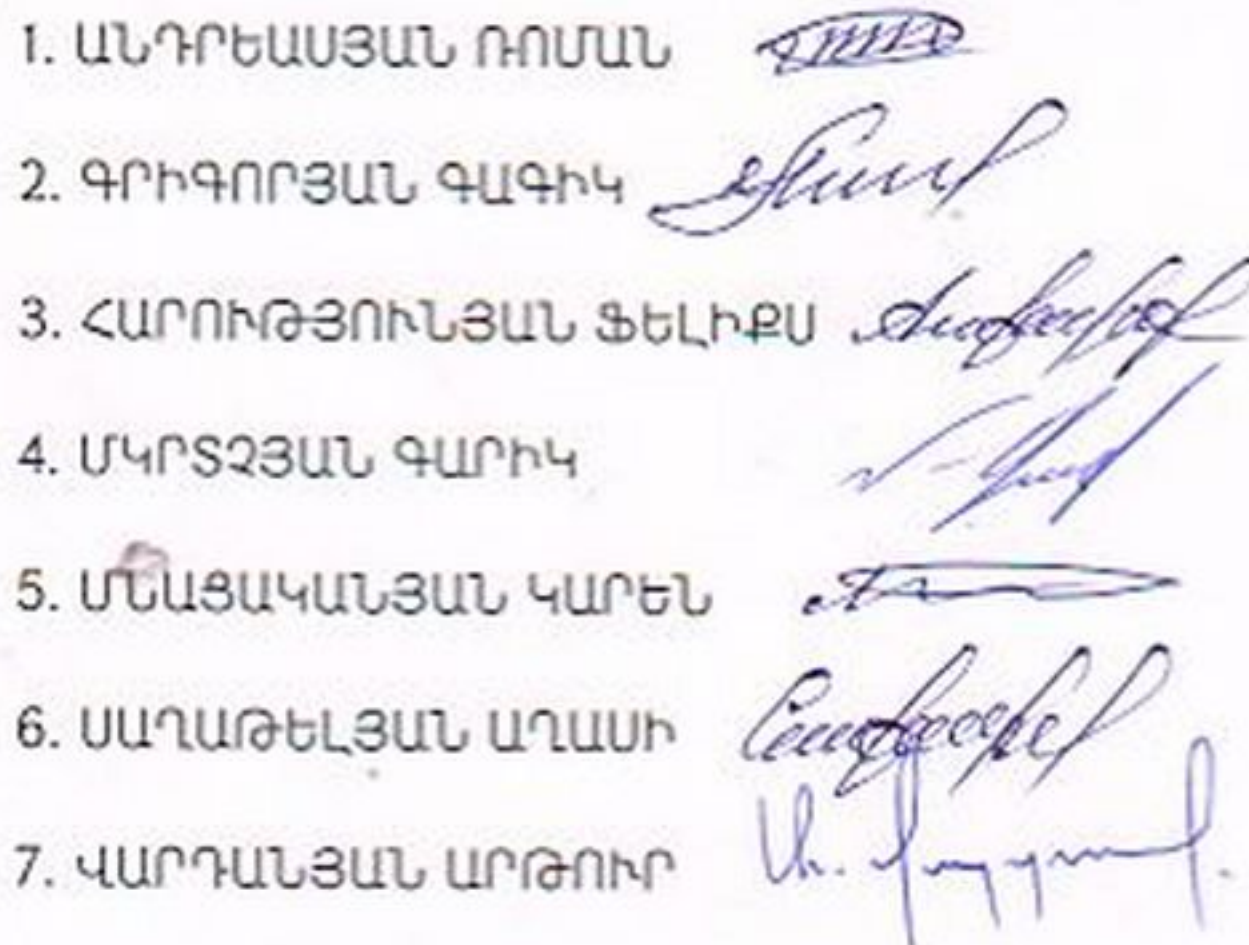 1. ԱՆԴՐԵԱՍՅԱՆ ՌՈՄԱՆ
2. ԳՐԻԳՈՐՅԱՆ ԳԱԳԻԿ
3. ՀԱՐՈՒԹՅՈՒՆՅԱՆ ՖԵԼԻՔՍ
4. ՄԿՐՏՉՅԱՆ ԳԱՐԻԿ
5. ՄՆԱՑԱԿԱՆՅԱՆ ԿԱՐԵՆ
6. ՍԱՂԱԹԵԼՅԱՆ ԱՂԱՍԻ
7. ՎԱՐԴԱՆՅԱՆ ԱՐԹՈՒՐ